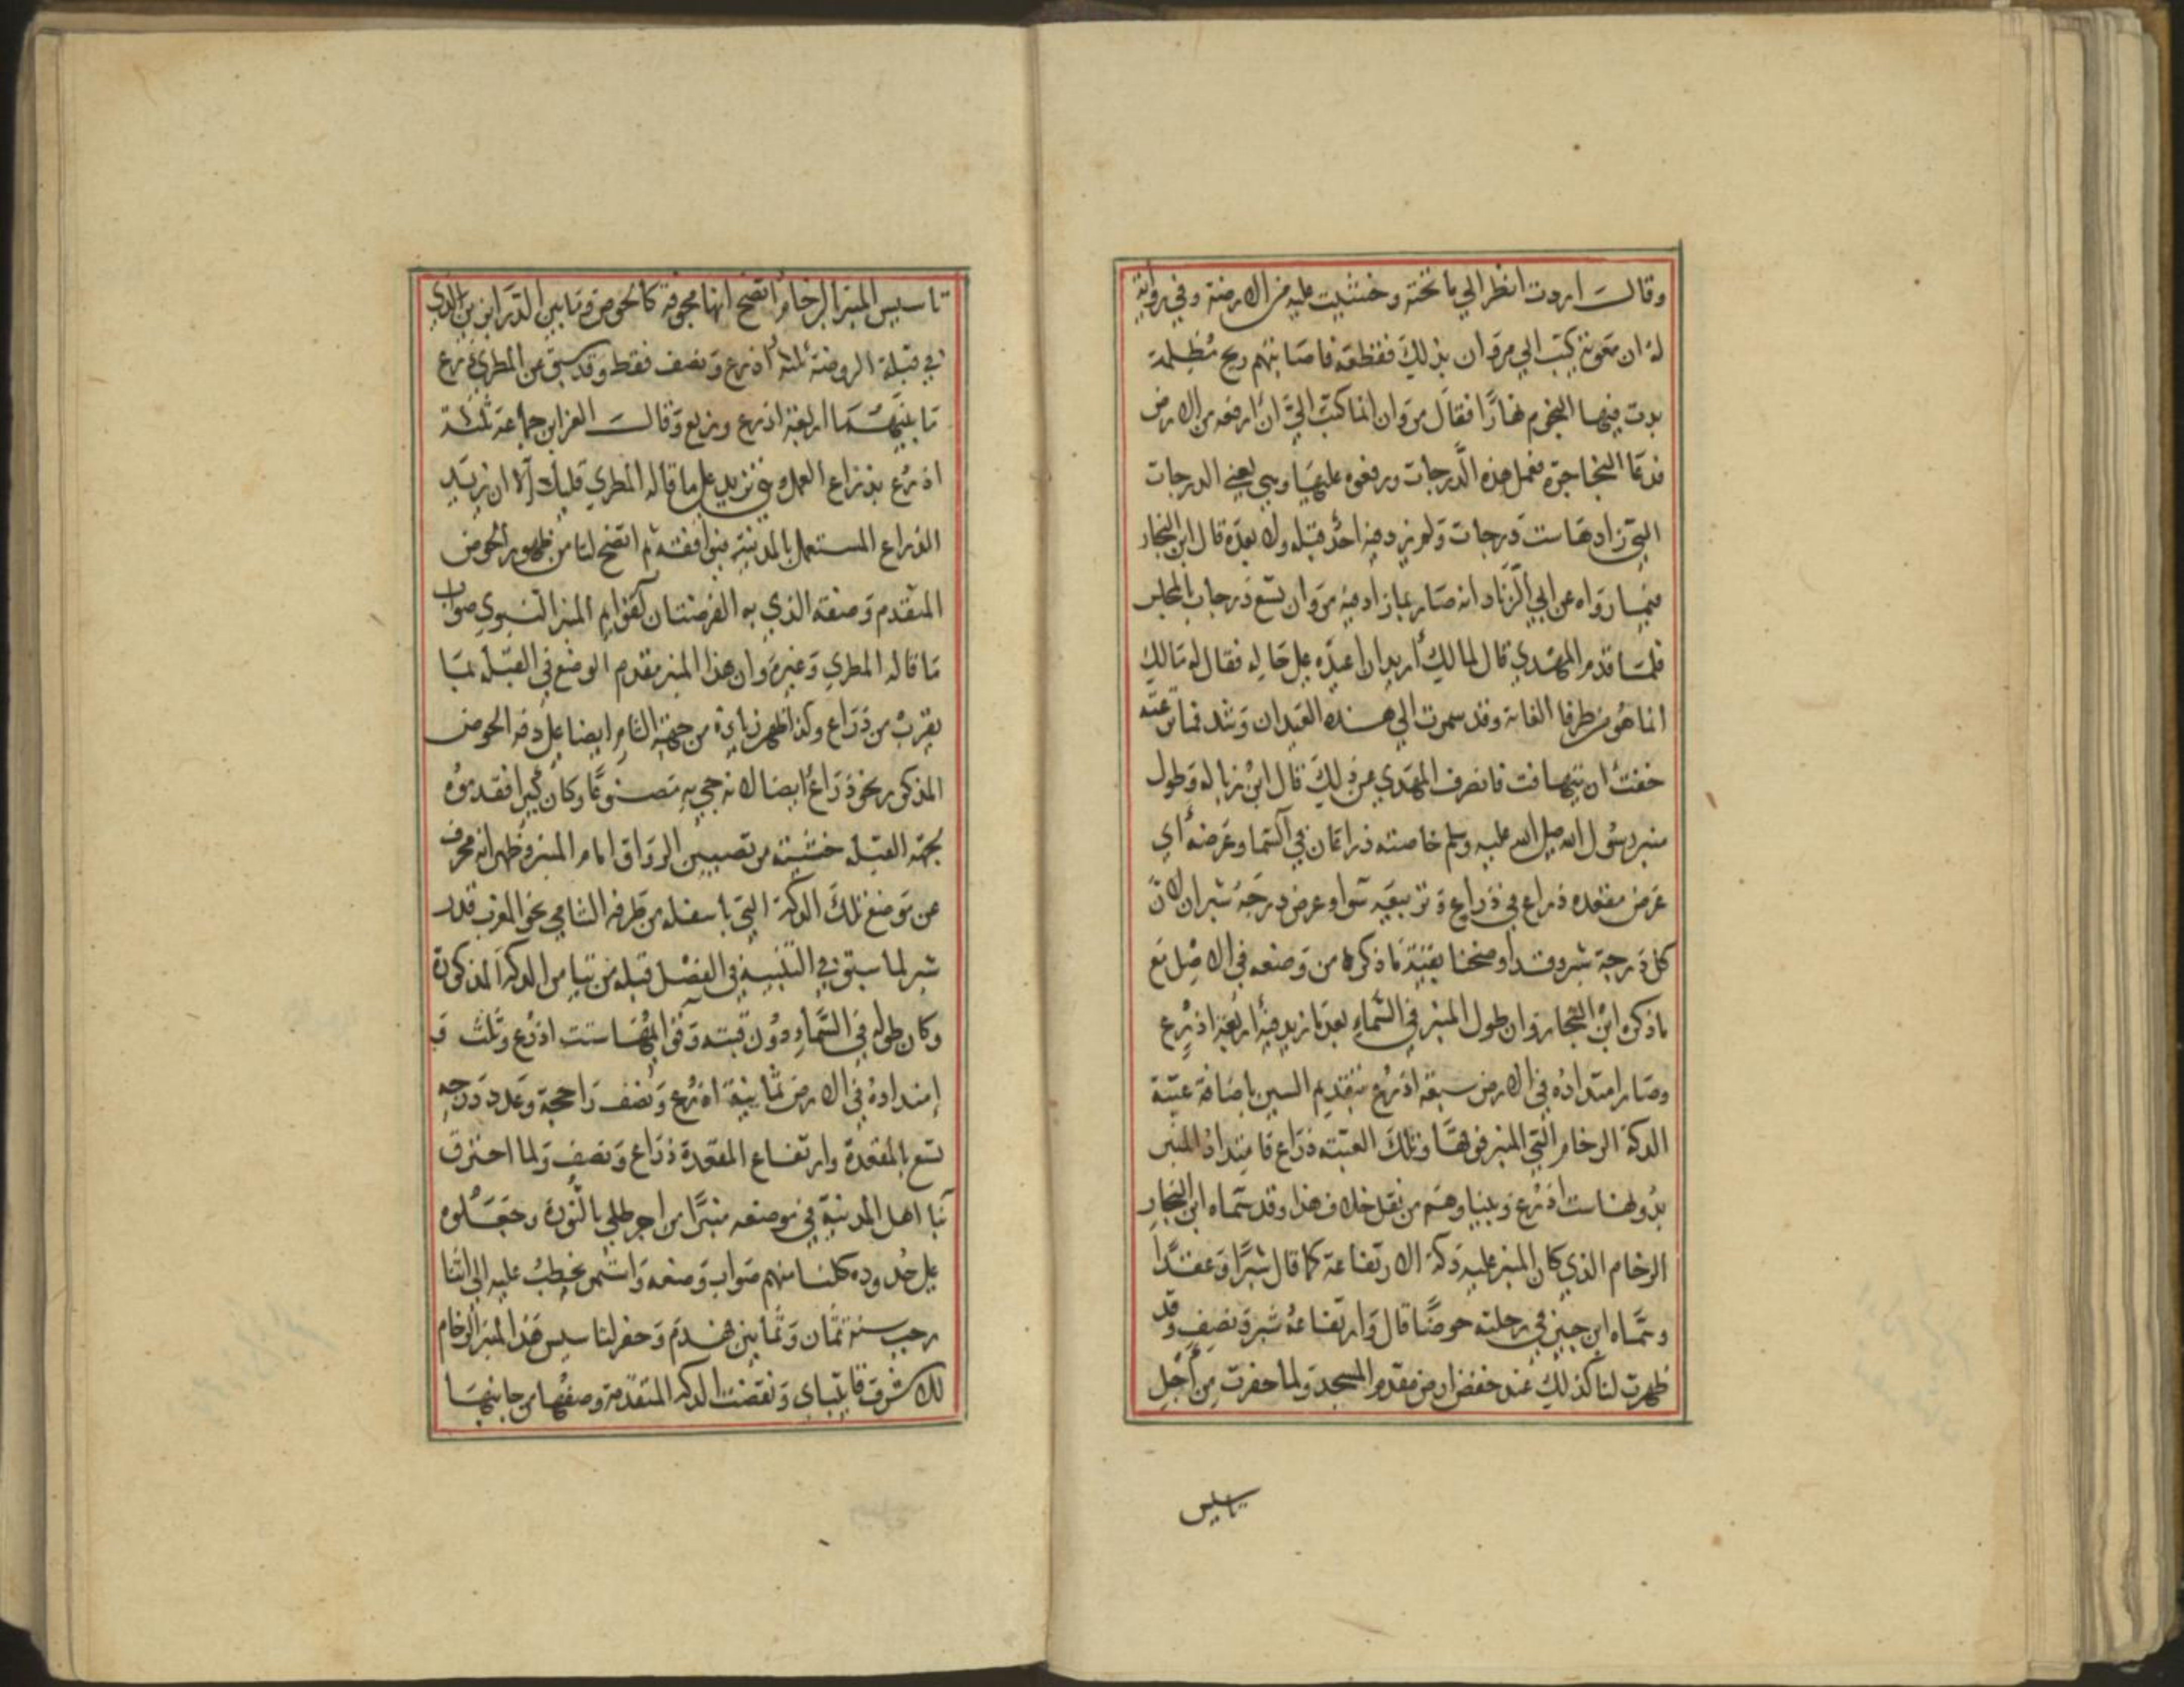 وقال اردت انظر الي ما تحته وخشيت عليه من الارضة وفي رواية
له ان معوية كتب الي مروان بذلك فقلعه فاصابتهم ريح مظلمة
بدت فيها النجوم نهارا فقال مروان انما كتب الي ان ارفعه من الارض
فدعا النجاجرة فعمل هذه الدرجات ورفعوه عليها وهي يعني الدرجات
التي زادها ست درجات ولم يزد فيه احد قبله ولا بعده قال ابن النجار
فيما رواه عن ابي الزناد انه صار بما زاد فيه مروان تسع درجات بالمجلس
فلما قدم المهدي قال لمالك اريد ان اعيده على حاله فقال له مالك
انما هو من طرفا الغابة وقد سمرت الي هذه العيدان وشد فمتي نزعته
خفت ان يتهافت فانصرف المهدي عن ذلك قال ابن زبالة وطول
منبر رسول الله صلى الله عليه وسلم خاصته ذراعان في السما وعرضه اي
عرض مقعده ذراع في ذراع وتربيعه سوا وعرض درجه شبران لان
كل درجة شبر وقد اوضحنا بقية ما ذكره من وصفه في الاصل مع
ما ذكره ابن النجار وان طول المنبر في السماء بعد ما زيد فيه اربعة اذرع
وصار امتداده في الارض سبعة اذرع بتقديم السين باضافة عتبة
الدكة الرخام التي المنبر فوقها وتلك العتبة ذراع فامتداد المنبر
بدونها ست اذرع وبينا وهم من نقل خلاف هذا وقد سماه ابن النجار
الرخام الذي كان المنبر عليه دكة الارتفاعه كما قال شبرا وعقدا
وسماه ابن جبير في رحلته حوضا قال وارتفاعه شبر ونصف وقد
ظهرت لنا كذلك عند خفض ارض مقدم المسجد ولما حفرت من اجل
تاسيس
تاسيس المنبر الرخام اتضح انها مجوفة كالحوض وما بين الدرابزين الذي
في قبلة الروضة ثلثة اذرع ونصف فقط وقد سبق عن المطري ذرع
ما بينهما اربعة اذرع وربع وقال العز ابن جماعة ثلثة
اذرع بذراع العمل وهي تزيد على ما قاله المطري قليلا الا ان يريد
الذراع المستعمل بالمدينة فيوافقه ثم اتضح لنا من ظهور الحوض
المتقدم وصفه الذي به الفرضتان لقوايم المنبر النبوي صواب
ما قاله المطري وغيره وان هذا المنبر مقدم الوضع في القبلة بما
يقرب من ذراع وكذا ظهر زيادة من جهة الشام ايضا على دفه الحوض
المذكور نحو ذراع ايضا لانه جي به مصنوعا وكان كبيرا فقدموه
لجهة القبلة خشية من تضييق الرواق امام المنبر وظهر انه محرف
عن موضع تلك الدكة التي باسفله من طرفه الشامي نحو المغرب قدر
شبر لما سبق في التنبيه في الفصل قبله من تيامن الدكة المذكورة
وكان طوله في السماء دون قبته وقوايمها ست اذرع وثلث و
امتداده في الارض ثمانية اذرع ونصف راجحة وعدد درجه
تسع بالمقعدة وارتفاع المقعدة ذراع ونصف ولما احترق
بنا اهل المدينة في موضعه منبرا من اجر طلي بالنورة وجعلوه
على حدوده كلنا منهم صواب وضعه واستمر يخطب عليه الي اثنا
رجب سنة ثمان وثمانين فهدم وحفر لتاسيس هذا المنبر الرخام
للاشرف قايتباي ونقضت الدكة المتقدمة وصفها من جانبها